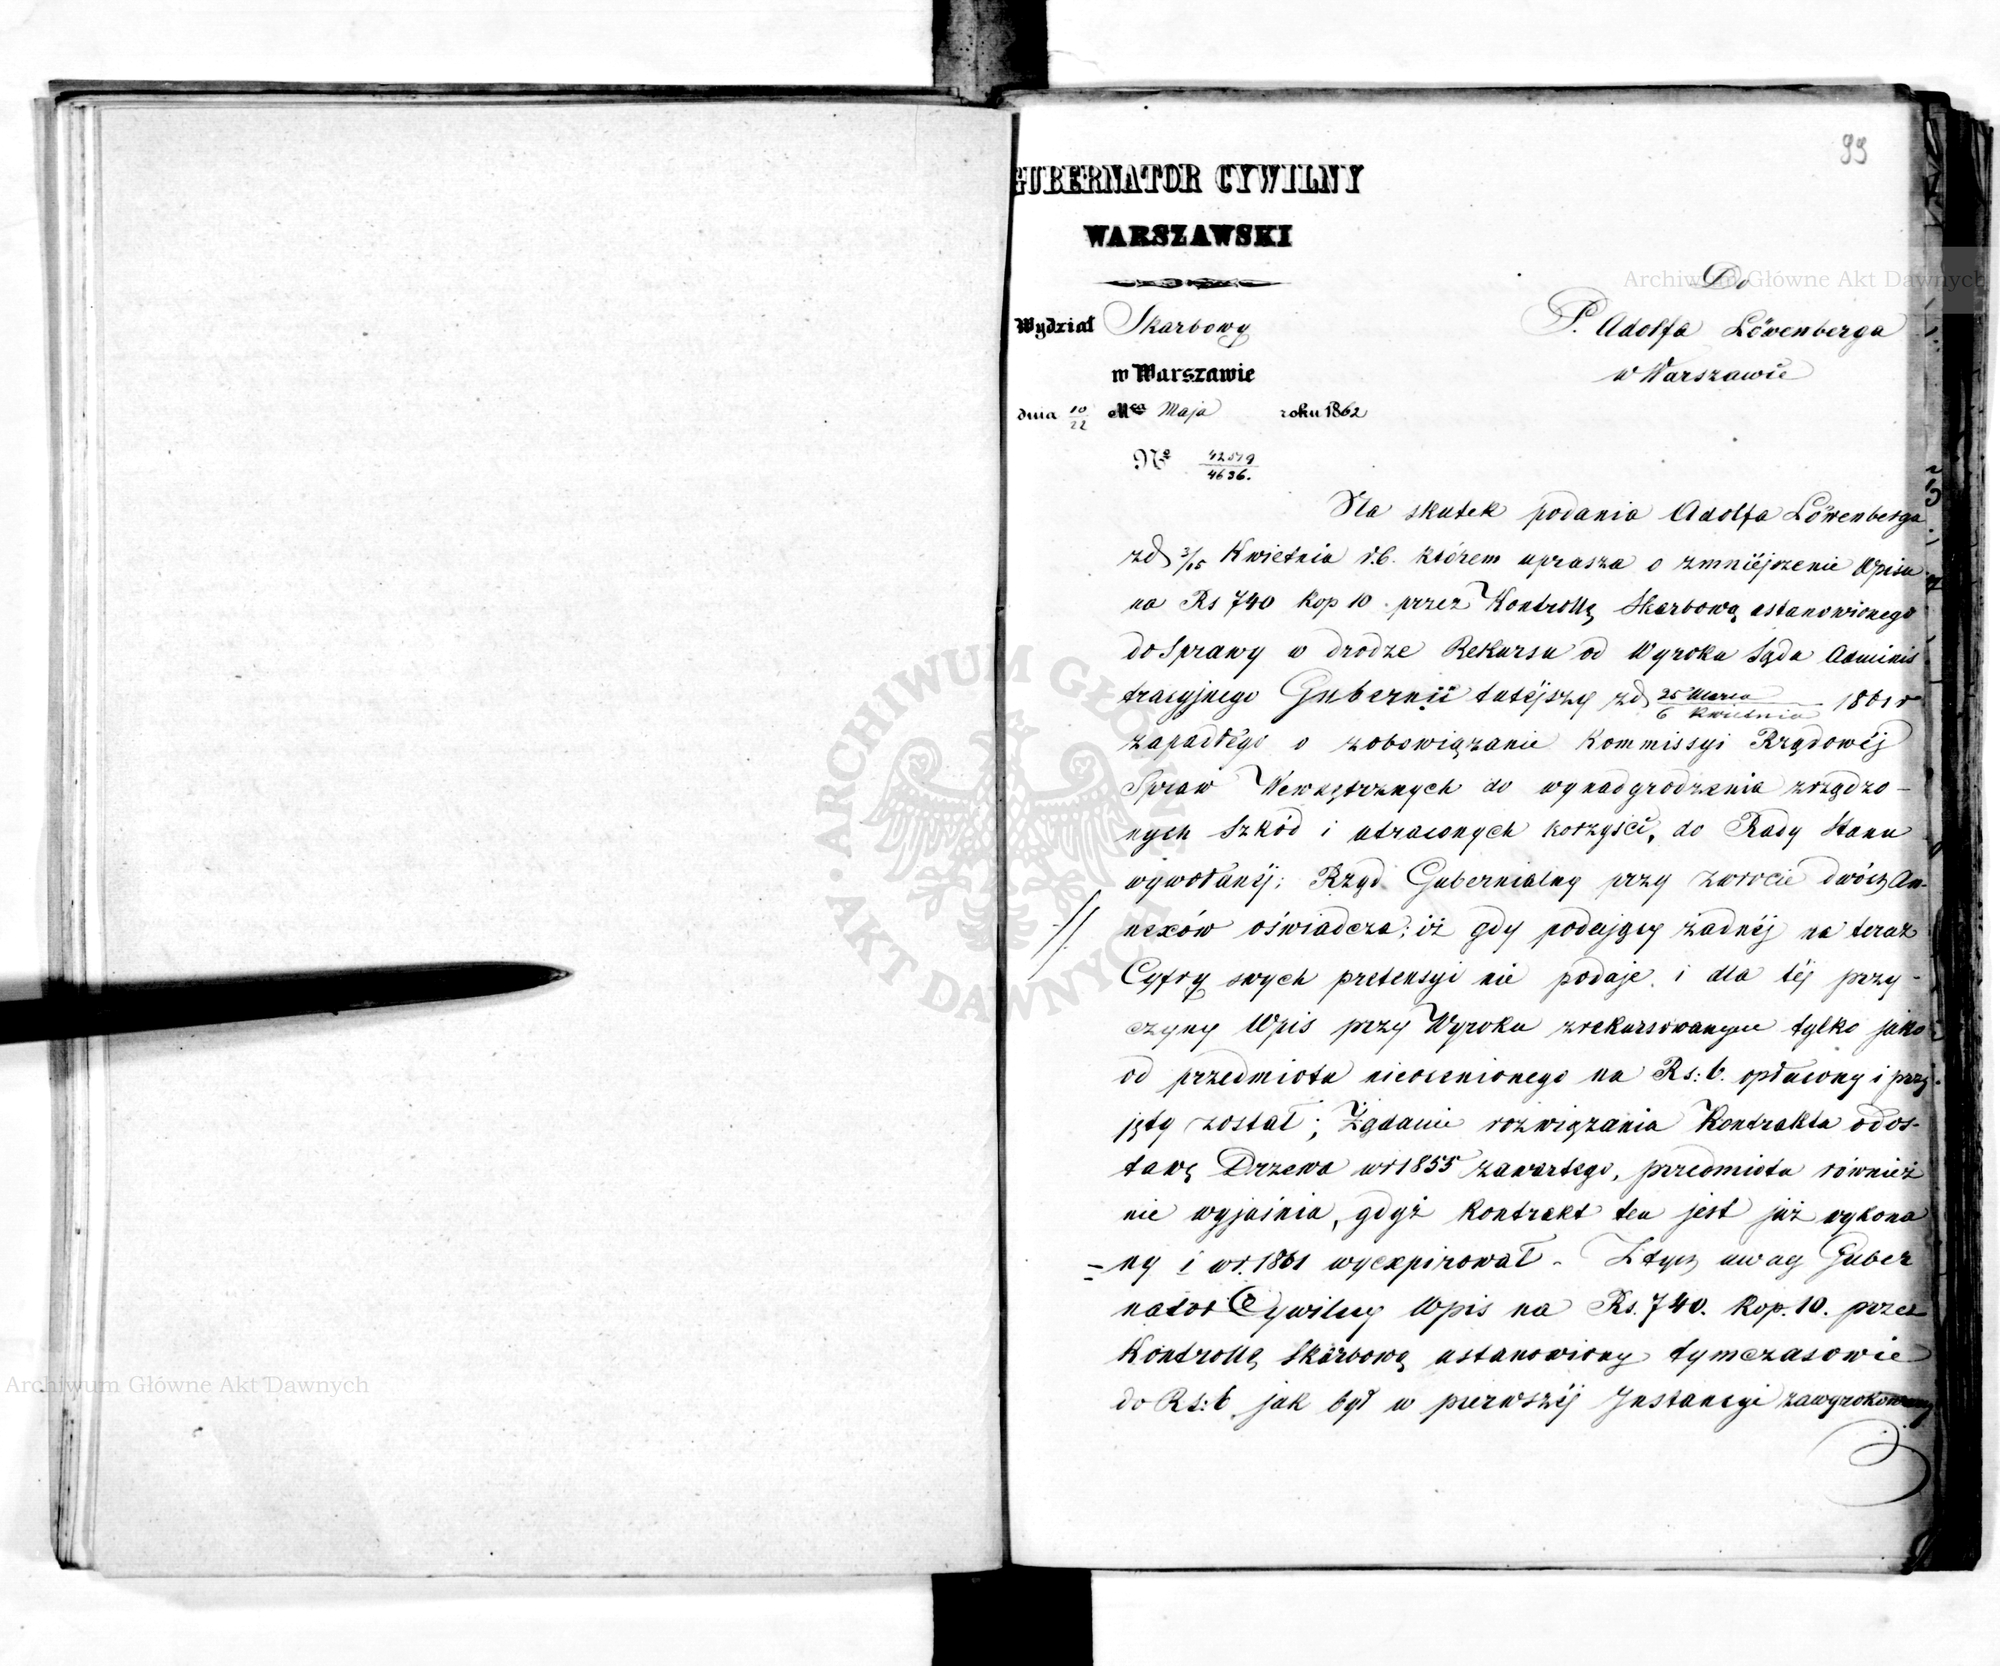 99
GUBERNATOR CYWILNY
WARSZAWSKI
Do
Wydział Skarbowy
P. Adolfa Löwenberga
w Warszawie
w Warszawie
dnia 10/22 Mca Maja roku 1862
No 42579/4636.
Na skutek podania Adolfa Löwenberga
zd 3/15 Kwietnia r.b. którem uprasza o zmniéjszenie Wpisu
na Rs 740 kop 10 przez Kontrollę Skarbową ustanowionego
do Sprawy w drodze Rekursu od Wyroku Sądu Adminis
tracyjnego Gubernii tutéjszéy zd 25 Marca/6 Kwietnia 1861 r
zapadłego o zobowiązanie Kommissyi Rządowéj
Spraw Wewnętrznych do wynadgrodzenia zrządzo-
nych Szkód i utraconych korzyści, do Rady Stanu
wywołanéj; Rząd Gubernialny przy zwrocie dwóch An-
nexów oświadcza; iż gdy podający żadnéj na teraz
Cyfry swych pretensyi nie podaje i dla téj przy-
czyny Wpis przy Wyroku zrekursowanym tylko jako
od przedmiotu nieocenionego na Rs: 6. opłacony i przy-
jęty został; Żądanie rozwiązania Kontraktu o dos-
tawę Drzewa w r 1855 zawartego, przedmiotu również
nie wyjaśnia, gdyż Kontrakt ten jest już wykona
ny i w r. 1861 wyexpirował - Z tych uwag Guber
nator Cywilny Wpis na Rs. 740. Kop. 10. przez
Kontrollę Skarbową ustanowiony tymczasowie
do Rs: 6 jak był w pierwszéj Instancyi zawyrokowany
Archiwum Główne Akt Dawnych
Archiwum Główne Akt Dawnych
ARCHIWUM GŁÓWNE AKT DAWNYCH